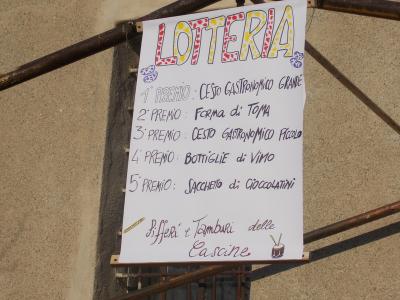 LOTTERIA
1° PREMIO: CESTO GASTRONOMICO GRANDE
2° PREMIO: FORMA di TOMA
3° PREMIO: CESTO GASTRONOMICO PICCOLO
4° PREMIO: BOTTIGLIE di VINO
5° PREMIO: SACCHETTO di CIOCCOLATINI
Pifferi e Tamburi delle
Cascine